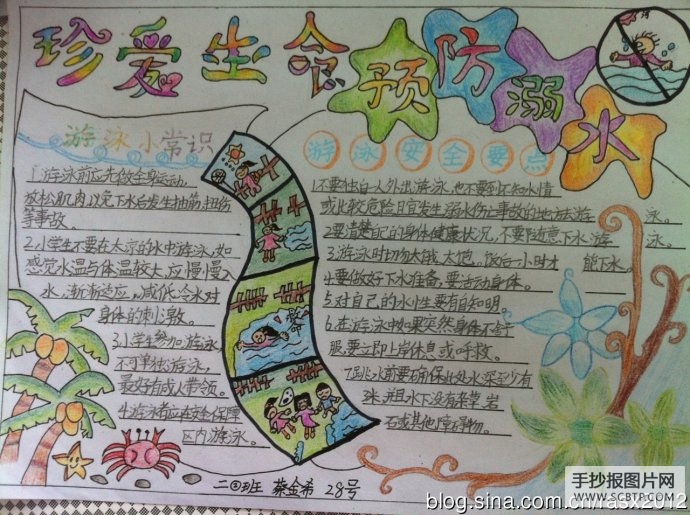 珍爱生命
预防溺水
游泳小常识
1.游泳前应先做全身运动,
放松肌肉,以免下水后发生抽筋,扭伤
等事故。
2.小学生不要在太凉的水中游泳,如
感觉水温与体温较大,应慢慢入
水,渐渐适应,减低冷水对
身体的刺激。
3.小学生参加游泳
不可单独游泳,
最好有成人带领。
4.游泳者应在安全保障
区内游泳。
救命
游泳安全要点
1.不要独自一人外出游泳,也不要到不知水情
或比较危险且宜发生溺水伤亡事故的地方游泳。
2.要清楚自己的身体健康状况,不要随意下水游泳。
3.游泳时切勿太饿、太饱。饭后一小时才能下水。
4.要做好下水准备,要活动身体。
5.对自己的水性要有自知明。
6.在游泳中如果突然身体不舒
服,要立即上岸休息或呼救。
7.跳水前要确保此处水深至少有
3米,并且水下没有杂草、岩
石或其他障碍物。
二②班 蔡金希 28号
手抄报图片网
WWW.SCBTP.COM
blog.sina.com.cn/rasx2012